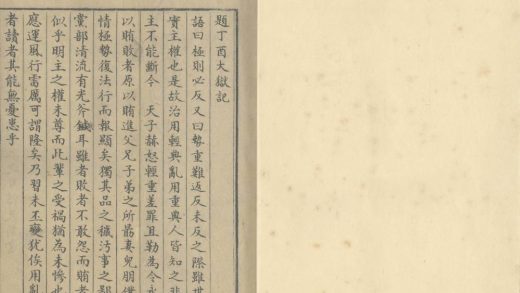 題丁酉大獄記
語曰極則必反又曰勢重難返反未反之際雖世
實主權也是故治用輕典亂用重典人皆知之非
主不能斷今　天子赫怒輕重差罪且勒為令永
以賄敗者原以賄進父兄子弟之所菑妻兒朋伊
情極勢復法行而報顯矣獨其品之穢污事之鄙
黨部清流有光斧鉞耳雖者敗者不敢怨而賄者
似乎明主之權未尊而此輩之受禍猶為未慘也
應運風行雷厲可謂隆矣乃習未丕變猶俟用亂
者讀者其能無憂患乎